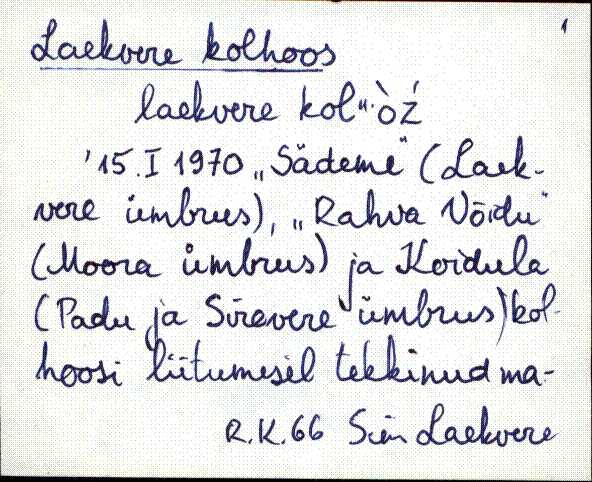 1
Laekvere kolhoos
laekvere kol"·òź
'15.I 1970 „Sädeme" (Laek-
vere ümbrus), „Rahva Võidu"
(Moora ümbrus) ja Koidula
(Padu ja Sirevere ümbrus) kol-
hoosi liitumisel tekkinud ma-
R.K.66 Sim Laekvere